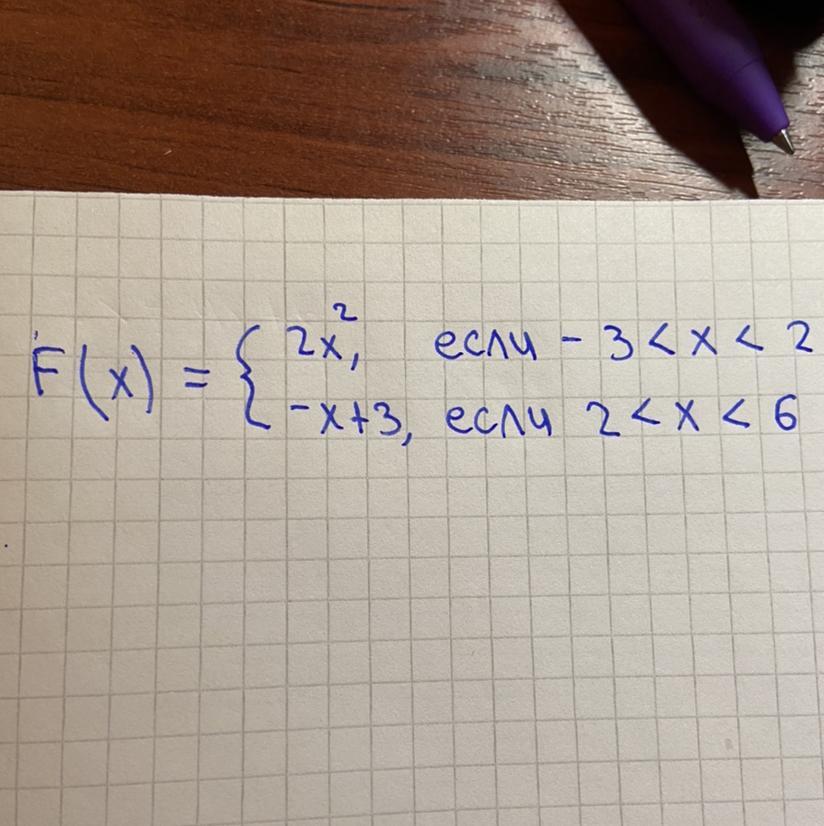 F(x) = { 2x², если - 3 < x < 2
-x+3, если 2 < x < 6